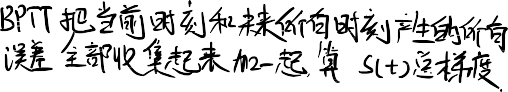 BPTT 把当前时刻和未来所有时刻产生的所有
误差全部收集起来加一起,算 S(t)总梯度.